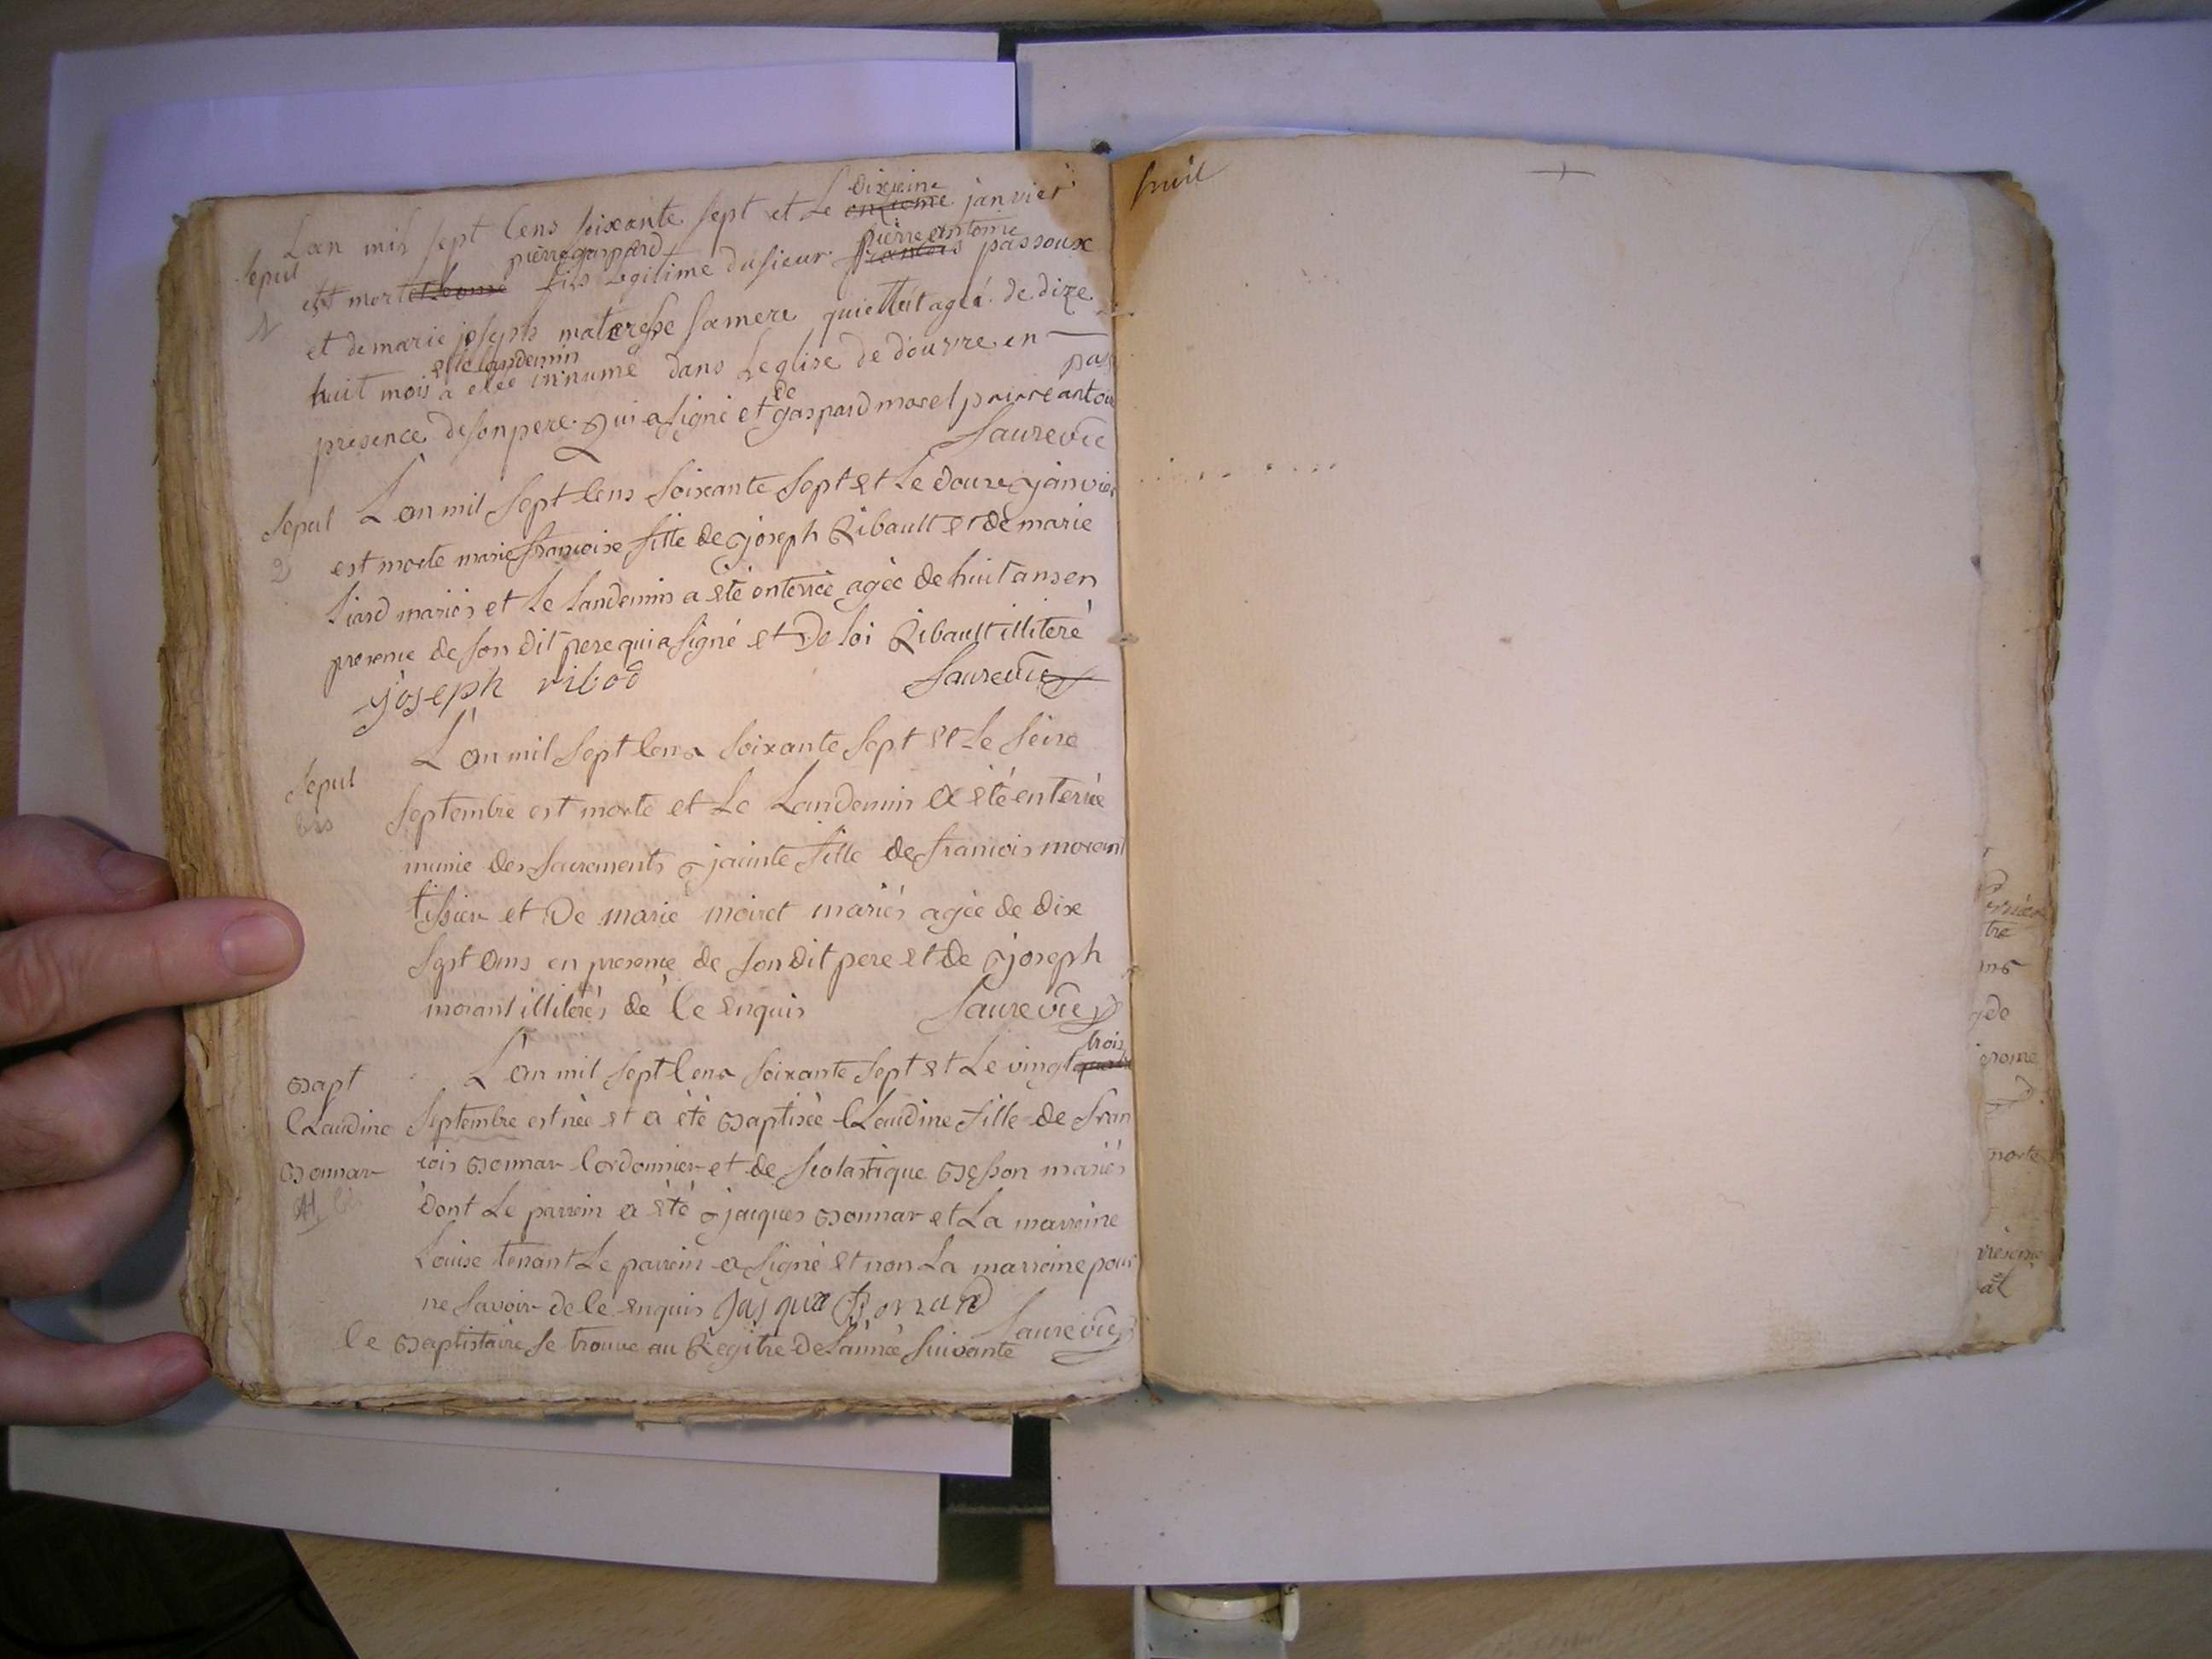 Lan mil sept cens soixante sept et le dixieme janvier
sepul
1
est mort pierre gaspard fils legitime du sieur pierre antoine passoux
et de marie joseph sa mere qui ettét ageé de dize
huit mois et le landemin a etée innumé dans Leglise de douvre en
presence de son pere qui a signé et de gaspard morel pairre antoi pas
Saure vic
sepul
2
L'an mil sept cens soixante sept et le douze janvier
est morte marie francoise fille de joseph Ribault et de marie
Liard mariés et le landemin a été enterrée agée de huit ans en
presence de son dit pere qui a signé et De loi Ribault illiteré
joseph ribod Saure vic
sepul
bis
L'an mil sept cens soixante sept et le seize
septembre est morte et Le Landemin a été enterrée
munie des sacrements jacinte fille de francois morant
tissier et De marie moiret mariés agée de dix
sept ans en presence de son dit pere et de joseph
morant illiterés de ce enquis Saure vic
Bapt
Claudine
Bonnar
11 bis
L'an mil sept cens soixante sept et Le vingt trois
septembre est née et a été Baptisée Claudine fille de fran
cois Bonnar Cordonnier et de scolastique Besson mariés
dont Le parrein a été jacques Bonnar et La marreine
Louise tenant Le parrein a signé et non La marreine pour
ne savoir de ce enquis jasque Bonard Saure vic
Le Baptistaire se trouve au Registre de L'année suivante